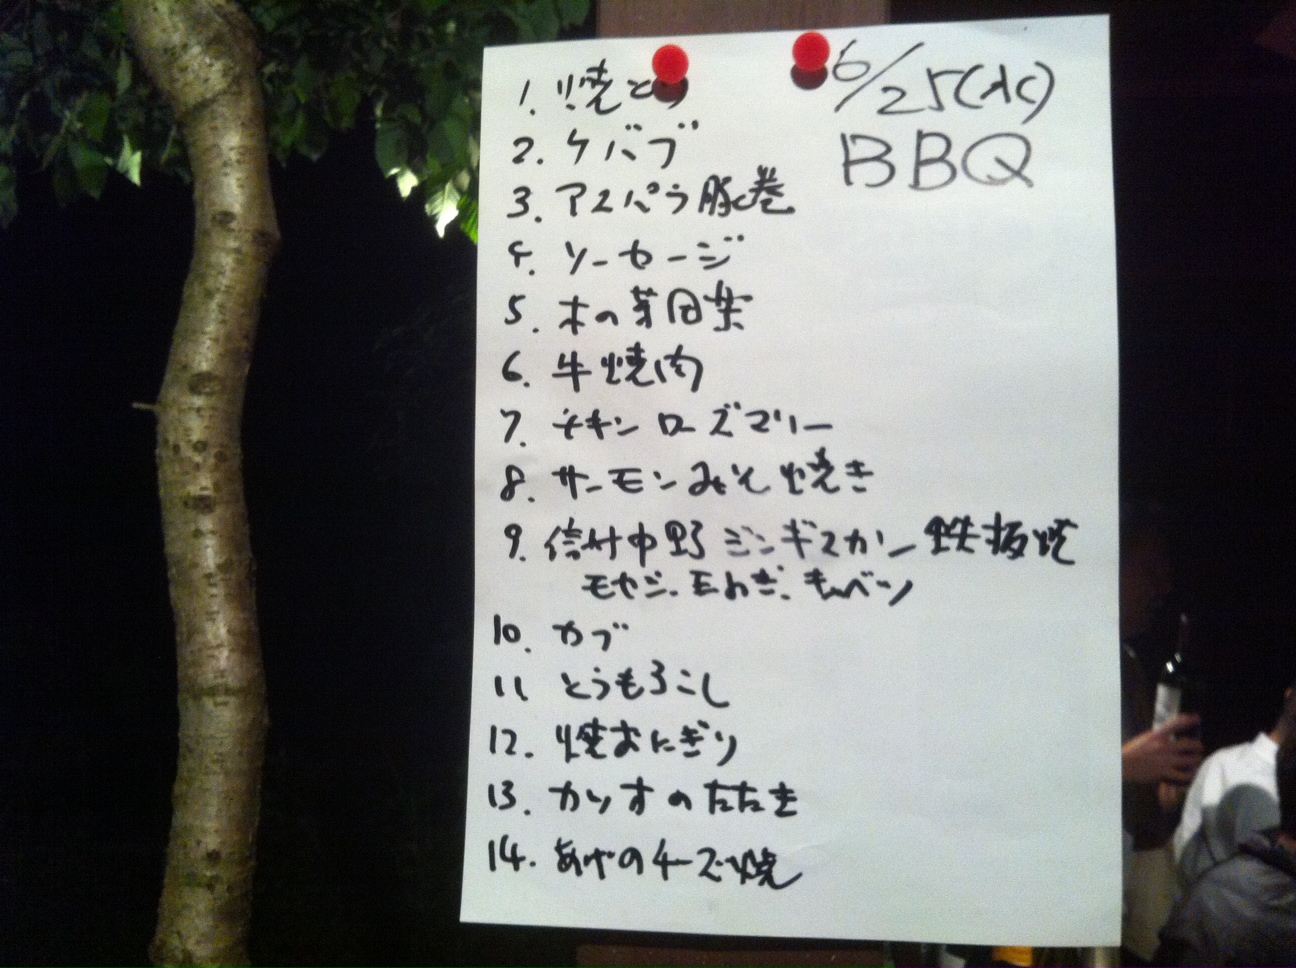 6/25(水)
BBQ
1. 焼とり
2. ケバブ
3. アスパラ豚巻
4. ソーセージ
5. 木の芽田楽
6. 牛焼肉
7. チキンローズマリー
8. サーモンみそ焼き
9. 信州中野ジンギスカン鉄板焼
モヤシ、玉ねぎ、キャベツ
10. カブ
11 とうもろこし
12. 焼おにぎり
13. カツオのたたき
14. あげのチーズ焼